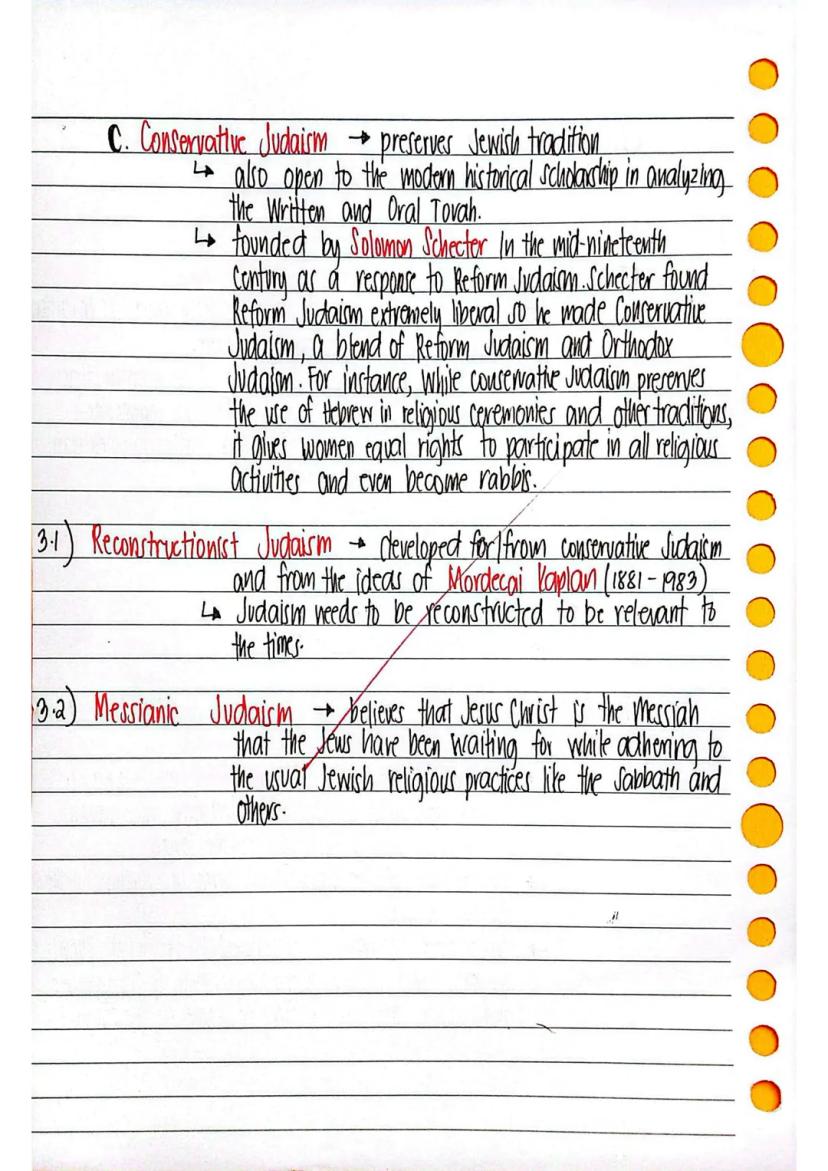 C. Conservative Judaism → preserves Jewish tradition
↳ also open to the modern historical scholarship in analyzing
the Written and Oral Tovah.
↳ founded by Solomon Schecter in the mid-nineteenth
Century as a response to Reform Judaism. Schecter found
Reform Judaism extremely liberal so he made Conservative
Judaism, a blend of Reform Judaism and Orthodox
Judaism. For instance, while conservative Judaism preserves
the use of Hebrew in religious ceremonies and other traditions,
it gives women equal rights to participate in all religious
activities and even become rabbis.
3.1) Reconstructionist Judaism → developed for/from conservative Judaism
and from the ideas of Mordecai Kaplan (1881-1983)
↳ Judaism needs to be reconstructed to be relevant to
the times.
3.2) Messianic Judaism → believes that Jesus Christ is the Messiah
that the Jews have been waiting for while adhering to
the usual Jewish religious practices like the Sabbath and
others.